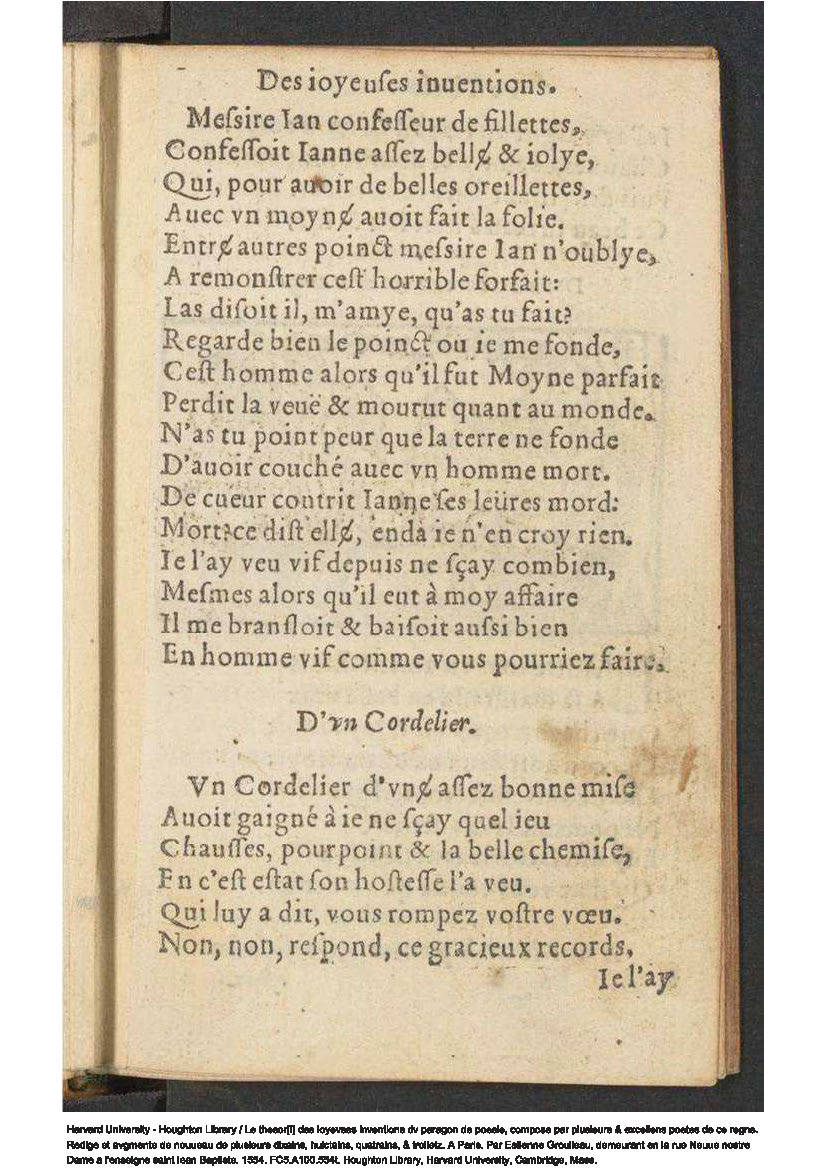 Des ioyeuſes inuentions.
Meſsire Ian confeſſeur de fillettes,
Confeſſoit Ianne aſſez bellɇ & iolye,
Qui, pour auoir de belles oreillettes,
Auec vn moynɇ auoit fait la folie.
Entrɇ autres poinct meſsire Ian n'oublye,
A remonſtrer ceſt horrible forfait:
Las diſoit il, m'amye, qu'as tu fait?
Regarde bien le poinct ou ie me fonde,
Ceſt homme alors qu'il fut Moyne parfait
Perdit la veuë & mourut quant au monde.
N'as tu point peur que la terre ne fonde
D'auoir couché auec vn homme mort.
De cueur contrit Ianne ſes leüres mord:
Mort?ce diſt ellɇ, enda ie n'en croy rien.
Ie l'ay veu vif depuis ne ſçay combien,
Meſmes alors qu'il eut à moy affaire
Il me branſloit & baiſoit auſsi bien
En homme vif comme vous pourriez faire.
D'vn Cordelier.
Vn Cordelier d'vnɇ aſſez bonne miſe
Auoit gaigné à ie ne ſçay quel ieu
Chauſſes, pourpoint & la belle chemiſe,
En c'eſt eſtat ſon hoſteſſe l'a veu.
Qui luy a dit, vous rompez voſtre vœu.
Non, non, reſpond, ce gracieux records,
Ie l'ay
Harvard University - Houghton Library / Le thesor[!] des ioyevses inventions dv paragon de poesie, compose par plusieurs & excellens poetes de ce regne.
Redige et avgmente de nouueau de plusieurs dixains, huictains, quatrains, & triolletz. A Paris. Par Estienne Groulleau, demeurant en la rue Neuue nostre
Dame a l'enseigne saint Iean Baptiste. 1554. FC5.A100.554t. Houghton Library, Harvard University, Cambridge, Mass.